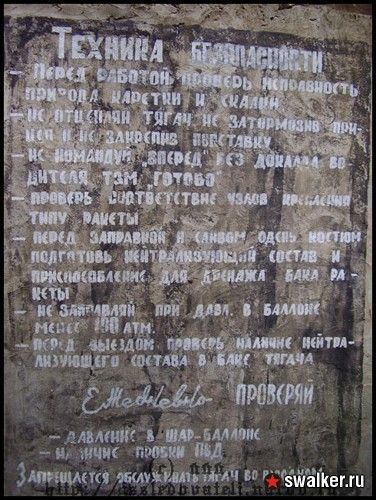 Техника безопасности
— Перед работой проверь исправность
привода каретки и скалки
— не отцепляй тягач не затормозив при-
цеп и не закрепив подставку
— не командуй „вперед" без доклада во-
дителя ТЗМ „готово"
— проверь соответствие узлов крепления
типу ракеты
— перед заправкой и сливом одень костюм
подготовь нейтрализующий состав и
приспособление для дренажа бака ра-
кеты
— не заправляй при давл. в баллоне
менее 100 атм.
— перед выездом проверь наличие нейтра-
лизующего состава в баке тягача
проверяй
— давление в шар-баллоне
— наличие пробки ПВД
Запрещается обслуживать тягач во
swalker.ru